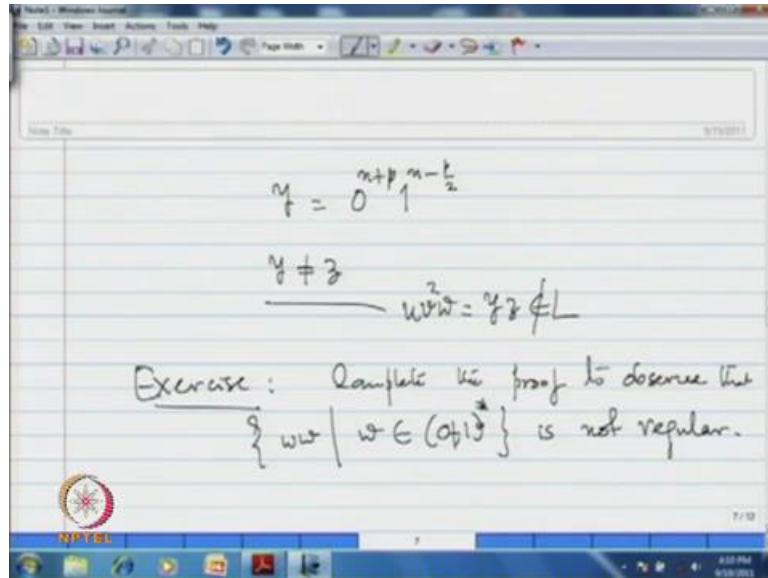 Note1 - Windows Journal
File Edit View Insert Actions Tools Help
Page Width
Note Title
9/19/2011
y = 0^{n+p} 1^{n-p/2}
y ≠ z
uv²w = yz ∉ L
Exercise : Complete the proof to observe that
{ ww | w ∈ (0+1)* } is not regular.
NPTEL
7/12
7
4:10 PM
9/19/2011